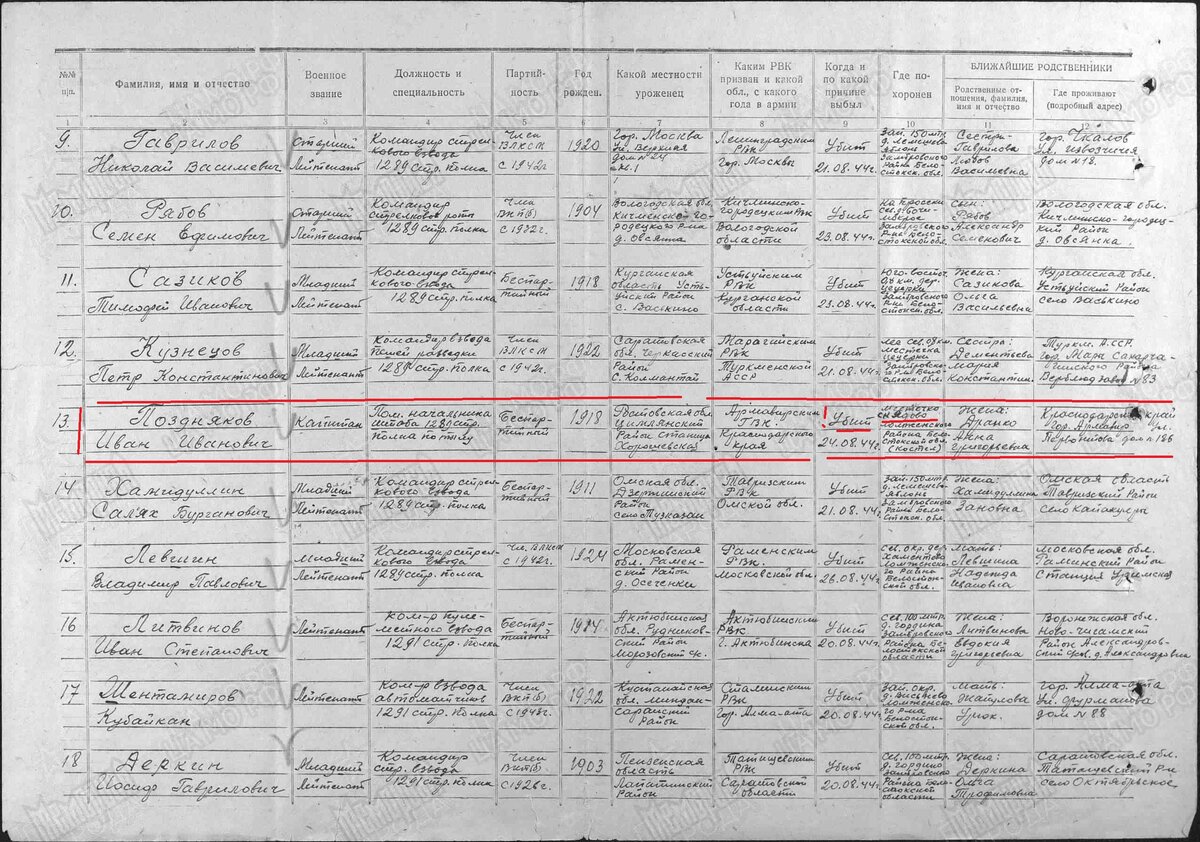 №№ п/п.
Фамилия, имя и отчество
Военное звание
Должность и специальность
Партийность
Год рожден.
Какой местности уроженец
Каким РВК призван и какой обл., с какого года в армии
Когда и по какой причине выбыл
Где похоронен
БЛИЖАЙШИЕ РОДСТВЕННИКИ
Родственные отношения, фамилия, имя и отчество
Где проживают (подробный адрес)
1 2 3 4 5 6 7 8 9 10 11 12
9. Гаврилов Николай Васильевич
Старший Лейтенант
Командир стрелкового взвода 1289 стр. полка
Член ВЛКСМ с 1942 г.
1920
Гор. Москва
дом № 24 кв. 1
Ленинградским РВК Гор. Москвы
Убит 21.08.44 г.
Зап. 150 мтр.
Сестра- Гаврилова Любов Васильевна
Гор. Чкалов
дом № 18.
10. Рябов Семен Ефимович
Старший Лейтенант
Командир стрелковой роты 1289 стр. полка
Член ВКП(б) с 1932 г.
1904
Вологодская обл. Кичменско-городецкого р-на д. Овсянка
Кичменско-городецким РВК Вологодской области
Убит 23.08.44 г.
Сын: Рябов Александр Семенович
Вологодская обл. Кичменско-городецкий Район д. Овсянка
11. Сазиков Тимофей Иванович
Младший Лейтенант
Командир стрелкового взвода 1289 стр. полка
Беспартийный
1918
Курганская область Устьуйский Район с. Васькино
Устьуйским РВК Курганской области
Убит 23.08.44 г.
Жена: Сазикова Ольга Васильевна
Курганская обл. Устьуйский Район село Васькино
12. Кузнецов Петр Константинович
Младший Лейтенант
Командир взвода пешей разведки 1289 стр. полка
Член ВЛКСМ с 1942 г.
1922
Саратовская обл. Черкасский Район
РВК Туркменской АССР
Убит 21.08.44 г.
Сестра: Дементьева Мария Константин.
Туркм. АССР.
№ 83
13. Поздняков Иван Иванович
Капитан
Пом. начальника штаба 1289 стр. полка по тылу
Беспартийный
1918
Ростовская обл. Цимлянский Район Станица Хорошевская
Армавирским ГВК. Краснодарского Края
Убит 24.08.44 г.
местечко Снядово Ломженского Района Белостокской обл. (костел)
Жена: Дранко Анна Григорьевна
Краснодарский край гор. Армавир ул. дом № 186
14 Хамидуллин Салях Бурганович
Младший Лейтенант
Командир стрелкового взвода 1289 стр. полка
Беспартийный
1911
Омская обл. Район
Тавризским РВК Омской обл.
Убит 21.08.44 г.
Зап. 150 мтр.
Жена: Хамидуллина
Омская область Тавризский Район
15. Левшин Владимир Павлович
Младший Лейтенант
Командир стрелкового взвода 1289 полка
Чл. ВЛКСМ с 1942 г.
1924
Московская обл. Раменский Район д. Осеченки
Раменским РВК. Московской обл.
Убит 26.08.44 г.
Мать: Левшина Надежда Ивановна
Московская обл. Раминский Район Станция
16 Литвинов Иван Степанович
Лейтенант
Ком-р пулеметного взвода 1291 стр. полка
Беспартийный
1924
Актюбинская обл.
Актюбинским РВК г. Актюбинска
Убит 20.08.44 г.
Жена: Литвинова Евдокия Григорьевна
Воронежская обл. Ново-Чигамский Район
17 Шентамиров Кубайкан
Лейтенант
Ком-р взвода автоматчиков 1291 стр. полка
Член ВКП(б) с 1943 г.
1922
Кустанайская обл. Район
Сталинским РВК Гор. Алма-ата
Убит 20.08.44 г.
Мать:
Гор. Алма-ата Ул. Фурманова дом № 88
18 Деркин Иосиф Гаврилович
Младший Лейтенант
Командир стр. взвода 1291 стр. полка
Член ВКП(б) с 1926 г.
1903
Пензенская область Район
Татищевским РВК Саратовской области
Убит 20.08.44 г.
Жена: Деркина Ольга Трофимовна
Саратовская обл. Татищевский Р-н село Октябрьское